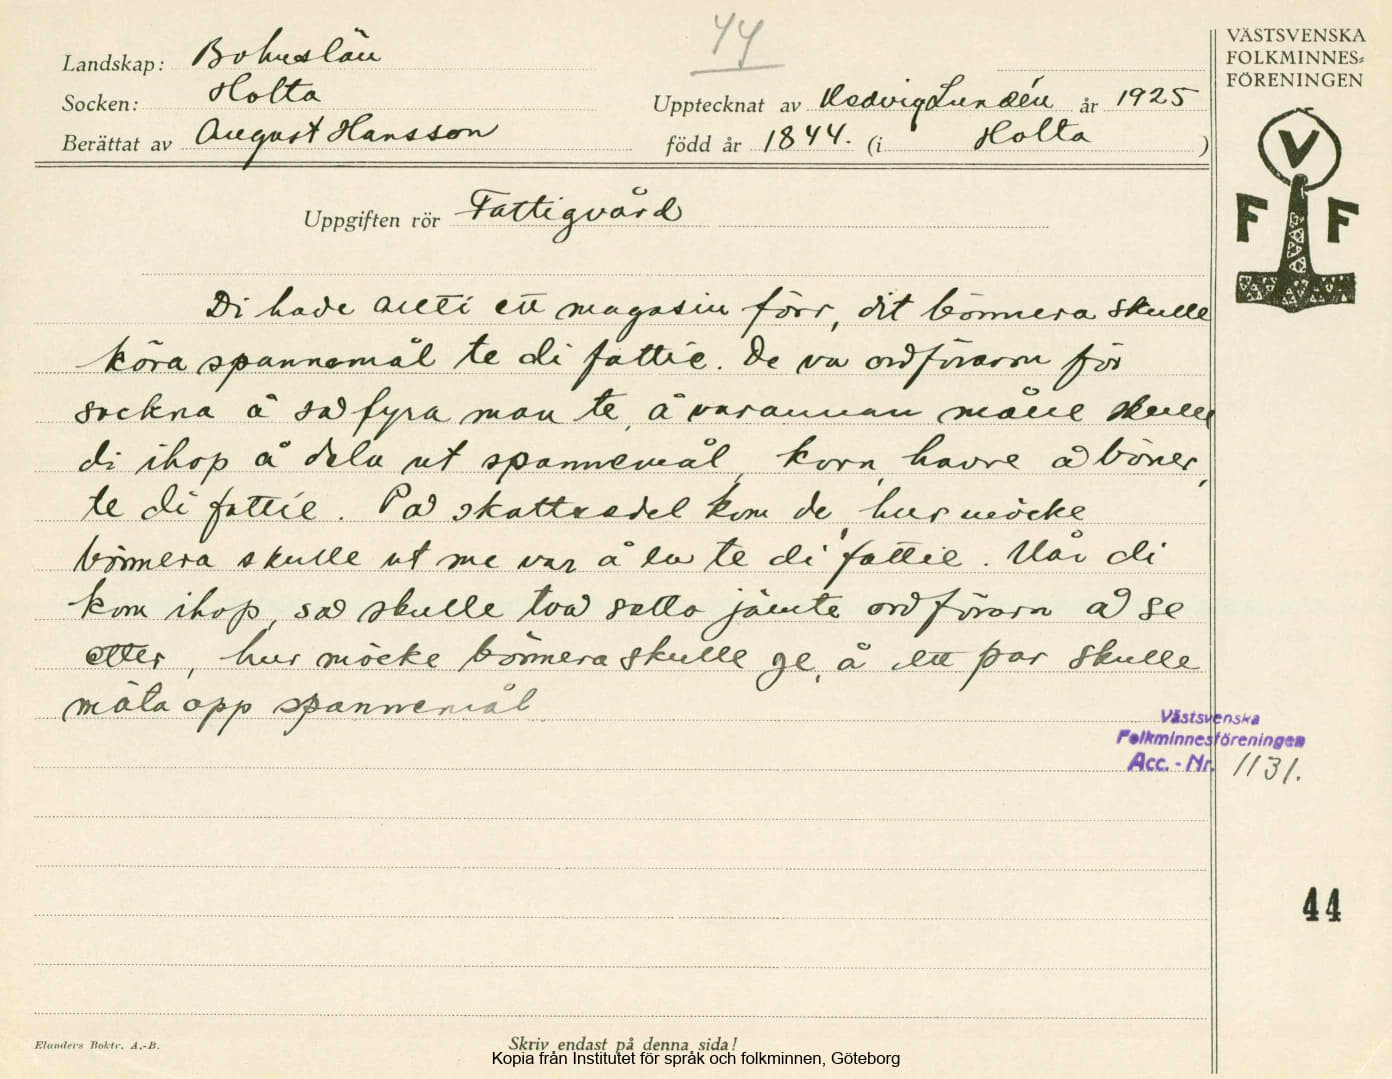 44
VÄSTSVENSKA
FOLKMINNES=
FÖRENINGEN
Landskap: Bohuslän
Socken: Holta
Upptecknat av Hedvig Lundén år 1925
Berättat av August Hansson
född år 1844. (i Holta)
V
F F
Uppgiften rör Fattigvård
Di hade allti ett magasin förr, dit bönnera skulle
köra spannemål te di fattie. De va ordförarn för
sockna å sad fyra man te, å varannan måne skulle
di ihop å dela ut spannemål, korn, havre å böner,
te di fattie. Pad skattsedel kom de, hur möcke
bönnera skulle ut me var å en te di fattie. Når di
kom ihop, sad skulle två setta jämte ordförarn å se
etter, hur möcke bönnera skulle ge, å ett par skulle
mäta opp spannemål
Västsvenska
Folkminnesföreningen
Acc.-Nr. 1131.
44
Elanders Boktr. A.-B.
Skriv endast på denna sida!
Kopia från Institutet för språk och folkminnen, Göteborg